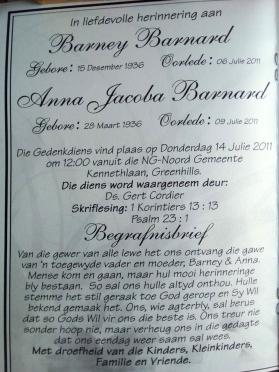 In liefdevolle herinnering aan
Barney Barnard
Gebore: 15 Desember 1936 Oorlede: 06 Julie 2011
Anna Jacoba Barnard
Gebore: 28 Maart 1936 Oorlede: 09 Julie 2011
Die Gedenkdiens vind plaas op Donderdag 14 Julie 2011
om 12:00 vanuit die NG-Noord Gemeente
Kennethlaan, Greenhills.
Die diens word waargeneem deur:
Ds. Gert Cordier
Skriflesing: 1 Korintiers 13 : 13
Psalm 23 : 1
Begrafnisbrief
Van die gewer van alle lewe het ons ontvang die gawe
van 'n toegewyde vader en moeder, Barney & Anna.
Mense kom en gaan, maar hul mooi herinneringe
bly bestaan. So sal ons hulle altyd onthou. Hulle
stemme het stil geraak toe God geroep en Sy Wil
bekend gemaak het. Ons, wie agterbly, sal berus
dat so Gods Wil vir ons die beste is. Ons treur nie
sonder hoop nie, maar verheug ons in die gedagte
dat ons eendag weer saam sal wees.
Met droefheid van die Kinders, Kleinkinders,
Familie en Vriende.